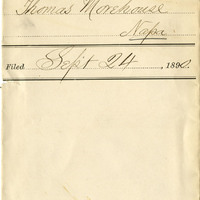 Thomas Morehouse
Napa
Filed Sept 24, 1890.